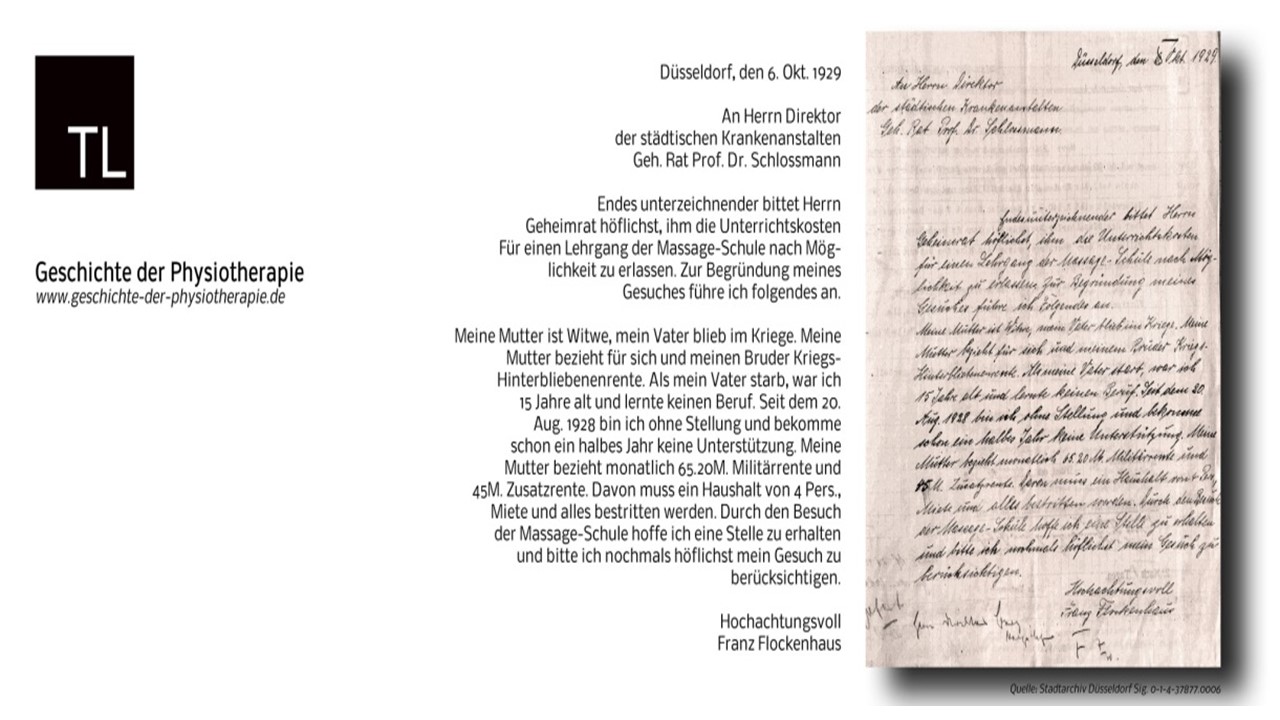 TL
Geschichte der Physiotherapie
www.geschichte-der-physiotherapie.de
Düsseldorf, den 6. Okt. 1929
An Herrn Direktor
der städtischen Krankenanstalten
Geh. Rat Prof. Dr. Schlossmann
Endes unterzeichnender bittet Herrn
Geheimrat höflichst, ihm die Unterrichtskosten
Für einen Lehrgang der Massage-Schule nach Mög-
lichkeit zu erlassen. Zur Begründung meines
Gesuches führe ich folgendes an.
Meine Mutter ist Witwe, mein Vater blieb im Kriege. Meine
Mutter bezieht für sich und meinen Bruder Kriegs-
Hinterbliebenenrente. Als mein Vater starb, war ich
15 Jahre alt und lernte keinen Beruf. Seit dem 20.
Aug. 1928 bin ich ohne Stellung und bekomme
schon ein halbes Jahr keine Unterstützung. Meine
Mutter bezieht monatlich 65.20M. Militärrente und
45M. Zusatzrente. Davon muss ein Haushalt von 4 Pers.,
Miete und alles bestritten werden. Durch den Besuch
der Massage-Schule hoffe ich eine Stelle zu erhalten
und bitte ich nochmals höflichst mein Gesuch zu
berücksichtigen.
Hochachtungsvoll
Franz Flockenhaus
Düsseldorf, den Okt. 1929.
An Herrn Direktor
der städtischen Krankenanstalten
Geh. Rat Prof. Dr. Schlossmann
Endesunterzeichnender bittet Herrn
Geheimrat höflichst, ihm die Unterrichtskosten
für einen Lehrgang der Massage-Schule nach Mög-
lichkeit zu erlassen. Zur Begründung meines
Gesuches führe ich Folgendes an.
Meine Mutter ist Witwe, mein Vater blieb im Kriege. Meine
Mutter bezieht für sich und meinen Bruder Kriegs-
Hinterbliebenenrente. Als meine Vater starb, war ich
15 Jahre alt und lernte keinen Beruf. Seit dem 20.
Aug. 1928 bin ich ohne Stellung und bekomme
schon ein halbes Jahr keine Unterstützung. Meine
Mutter bezieht monatlich 65.20 M. Militärrente und
45 M. Zusatzrente. Davon muss ein Haushalt von 4 Pers.,
Miete und alles bestritten werden. Durch den Besuch
der Massage-Schule hoffe ich eine Stelle zu erhalten
und bitte ich nochmals höflichst mein Gesuch zu
berücksichtigen.
Hochachtungsvoll
Franz Flockenhaus
Quelle: Stadtarchiv Düsseldorf Sig. 0-1-4-37877.0006